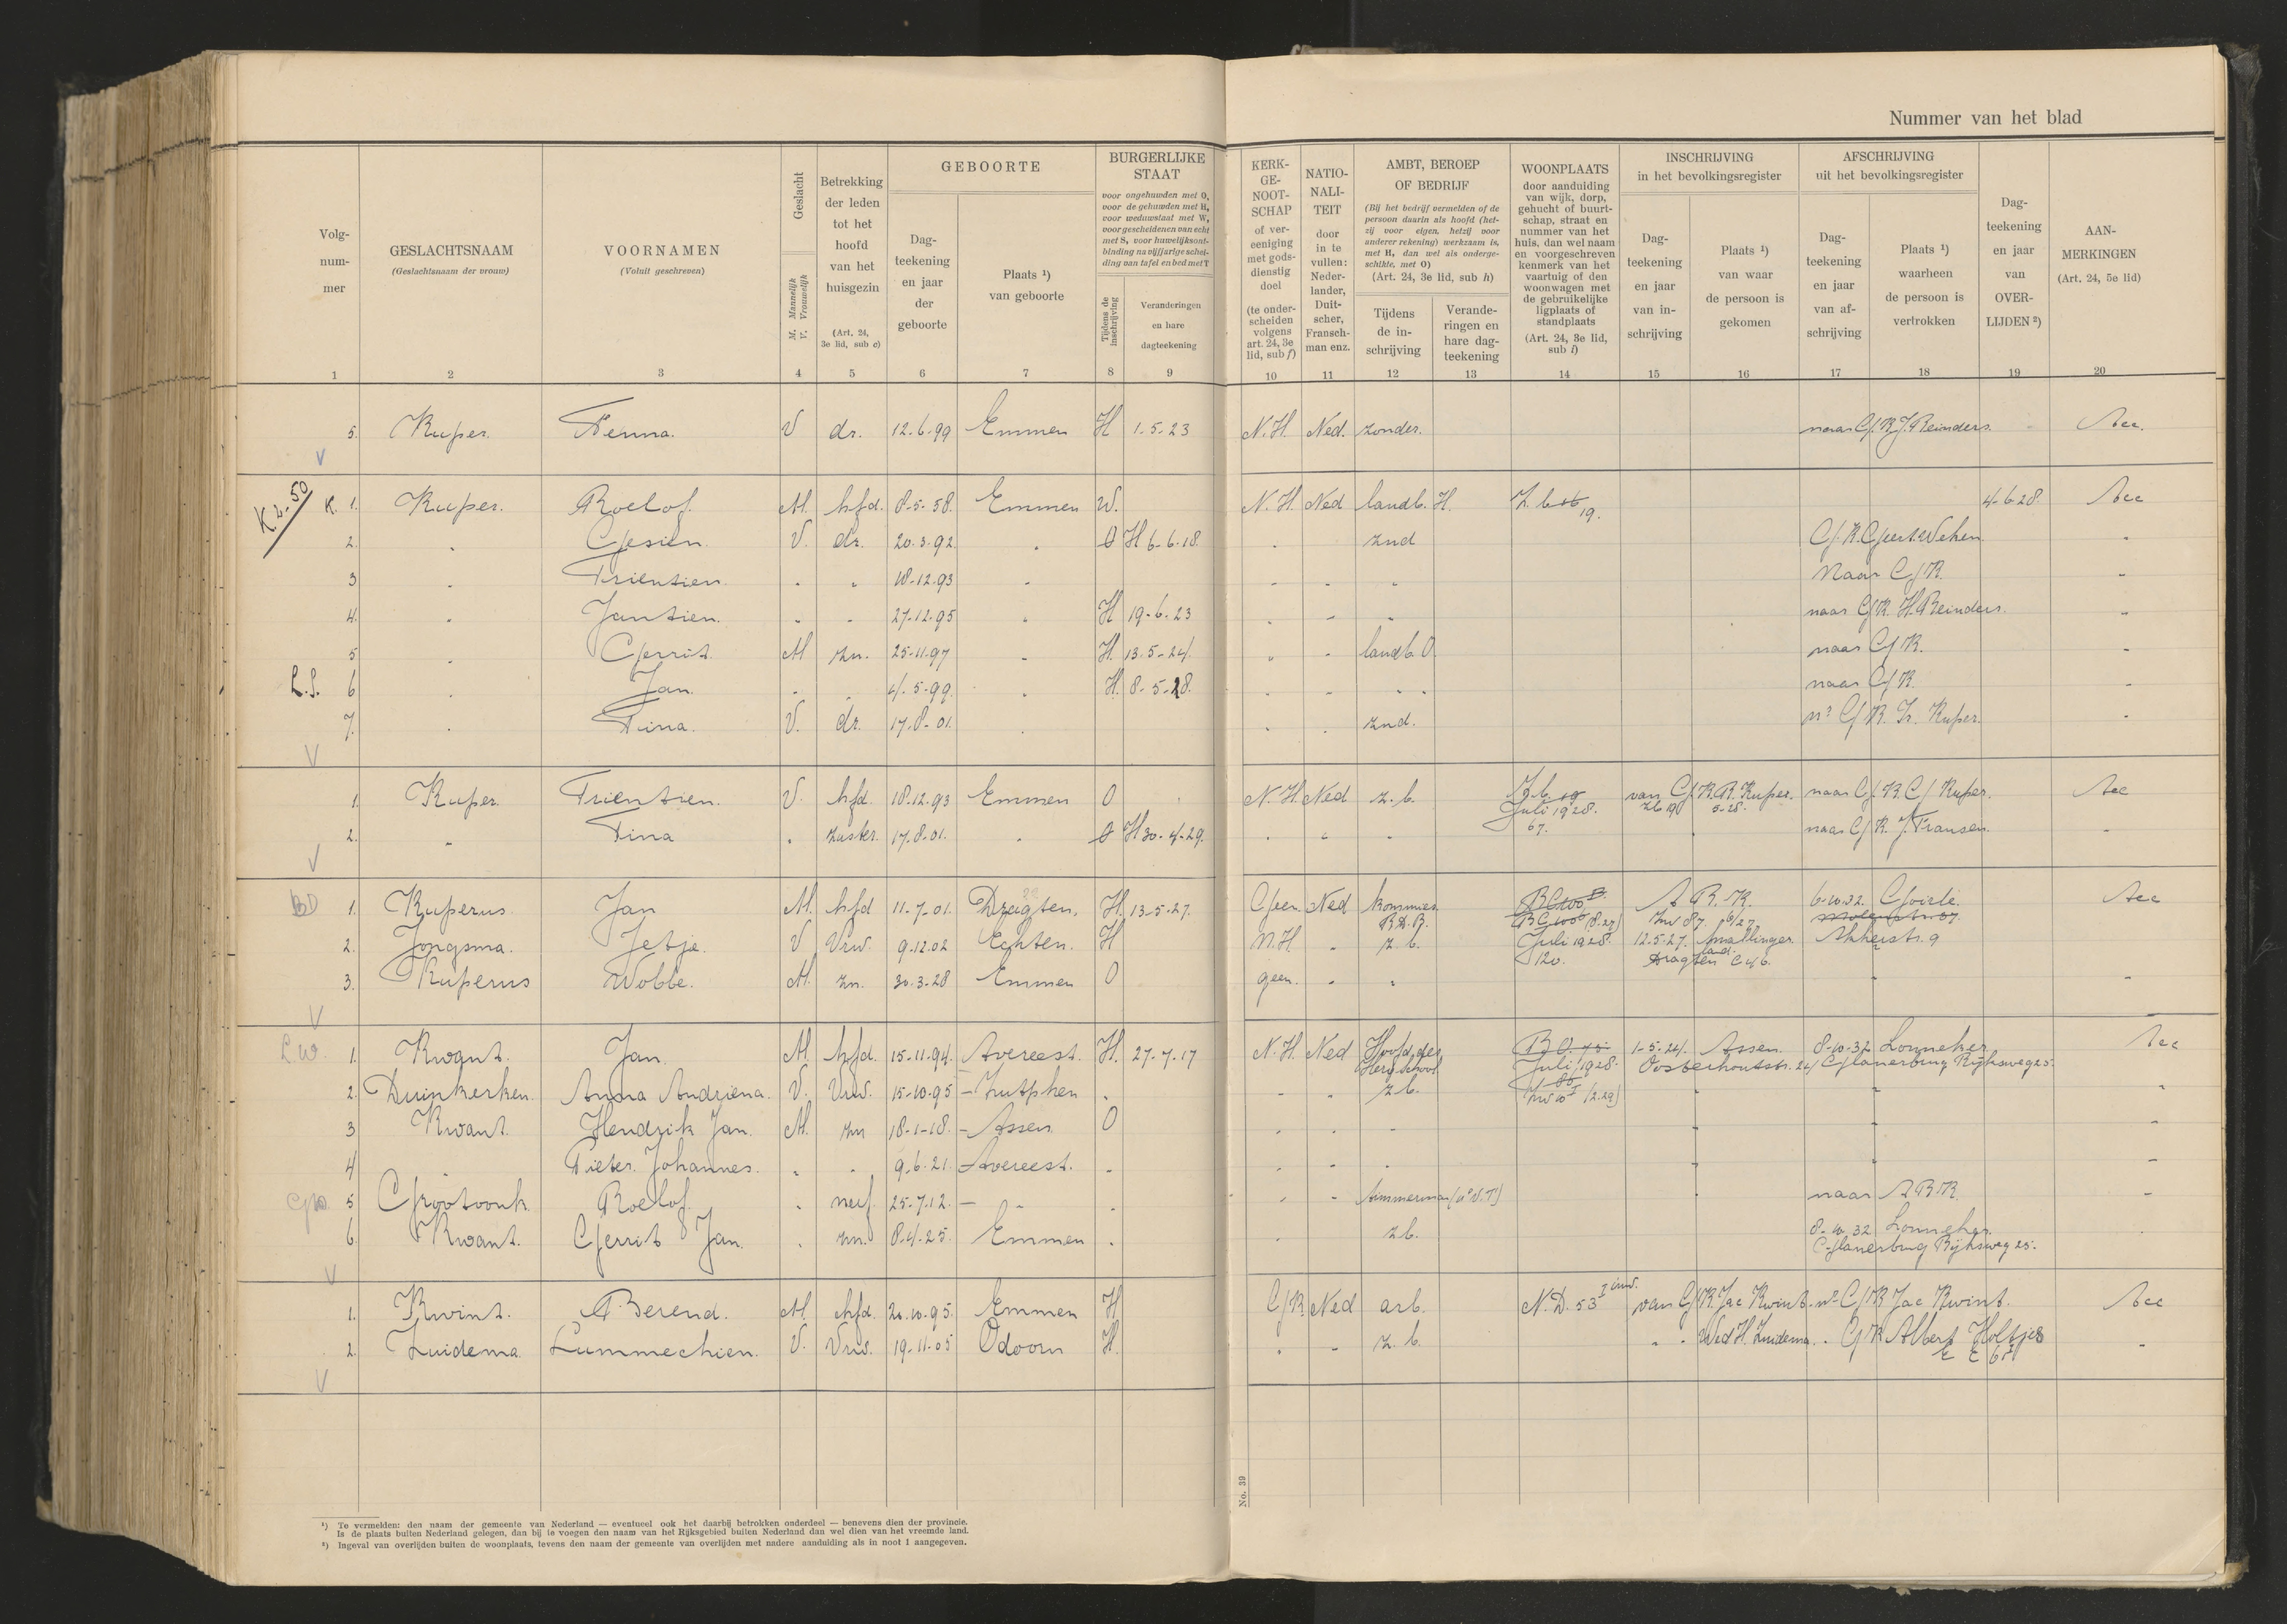 Nummer van het blad
Volg-
num-
mer
GESLACHTSNAAM
(Geslachtsnaam der vrouw)
VOORNAMEN
(Voluit geschreven)
Geslacht
M. Mannelijk
V. Vrouwelijk
Betrekking
der leden
tot het
hoofd
van het
huisgezin
(Art. 24,
3e lid, sub c)
GEBOORTE
Dag-
teekening
en jaar
der
geboorte
Plaats ¹)
van geboorte
BURGERLIJKE
STAAT
voor ongehuwden met O,
voor de gehuwden met H,
voor weduwstaat met W,
voor gescheidenen van echt
met S, voor huwelijksont-
binding na vijfjarige schei-
ding van tafel en bed met T
Tijdens de
inschrijving
Veranderingen
en hare
dagteekening
KERK-
GE-
NOOT-
SCHAP
of ver-
eeniging
met gods-
dienstig
doel
(te onder-
scheiden
volgens
art. 24, 3e
lid, sub f)
NATIO-
NALI-
TEIT
door
in te
vullen:
Neder-
lander,
Duit-
scher,
Fransch-
man enz.
AMBT, BEROEP
OF BEDRIJF
(Bij het bedrijf vermelden of de
persoon daarin als hoofd (het-
zij voor eigen, hetzij voor
anderer rekening) werkzaam is,
met H, dan wel als onderge-
schikte, met O)
(Art. 24, 3e lid, sub h)
Tijdens
de in-
schrijving
Verande-
ringen en
hare dag-
teekening
WOONPLAATS
door aanduiding
van wijk, dorp,
gehucht of buurt-
schap, straat en
nummer van het
huis, dan wel naam
en voorgeschreven
kenmerk van het
vaartuig of den
woonwagen met
de gebruikelijke
ligplaats of
standplaats
(Art. 24, 3e lid,
sub i)
INSCHRIJVING
in het bevolkingsregister
Dag-
teekening
en jaar
van in-
schrijving
Plaats ¹)
van waar
de persoon is
gekomen
AFSCHRIJVING
uit het bevolkingsregister
Dag-
teekening
en jaar
van af-
schrijving
Plaats ¹)
waarheen
de persoon is
vertrokken
Dag-
teekening
en jaar
van
OVER-
LIJDEN ²)
AAN-
MERKINGEN
(Art. 24, 5e lid)
1 2 3 4 5 6 7 8 9 10 11 12 13 14 15 16 17 18 19 20
5. Kuper. Fenna. V dr. 12.6.99 Emmen H 1-5-23 N.H. Ned. zonder. naar G.K. J. Reinders.
V
K 2-50 K. 1. Kuper. Roelof. M. hfd. 8-5-58. Emmen W. N.H. Ned landb. H. Z. b 19. 4-6-28.
2. " Gesien. V. dr. 20.3.92. " O H 6-6-18. " znd G.K. Geert Wehen
3 " Trientien. " " 18-12-93 " " " " Naar G/K.
4. " Jantien. " " 27-12-95 " H 19-6-23 " " " naar G/K. H. Reinders.
5 " Gerrit. M zn. 25-11-97 " H. 13-5-24. " " landb. O. naar G/K.
L.S. 6 " Jan. " " 4-5-99. " H. 8-5-28. " " " naar G/K.
7. " Tina. V. dr. 17-8-01. " " " znd. nr G/K. Tr. Kuper.
V
1. Kuper. Trientien. V. hfd. 18-12-93 Emmen O N.H. Ned z.b. Z.b. 19 van G/K. R. Kuper. naar G/K. G/ Kuper.
Juli 1928. Zb 19 5-28.
2. " Tina " zuster. 17-8-01. " O H 30-4-29. " " " 67. naar G/K. J. Fransen.
V
BD 1. Kuperus. Jan M. hfd 11-7-01. Dragten. H. 13-5-27. Geen. Ned kommies A.B.K. 6-10-32. Goirle.
R.D.B.
2. Jongsma. Jetje. V Vrw. 9-12-02 Echten. H N.H " z.b. Juli 1928. 12-5-27. Smallinger-
land.
120. Dragten C 46.
3. Kuperus Wobbe. M. zn. 30-3-28 Emmen O geen. " "
V
L.W. 1. Kwant. Jan. M. hfd. 15-11-94. Avereest. H. 27-7-17 N.H. Ned Hoofd der 1-5-24. Assen. 8-10-32 Lonneker
Herv. School Juli 1928. Oosterhoutstr. 24 Glanerbrug Rijksweg 25.
2. Duinkerken. Anna Andriena. V. Vrw. 15-10-95 - Zutphen " " " z.b.
3 Kwant. Hendrik Jan. M. zn 18-1-18. - Assen. O " " "
4 " Pieter Johannes. " " 9-6-21. - Avereest. " " " "
5 Grootoonk Roelof. " neef. 25-7-12. - " " " " timmerman naar A.B.K.
6 Kwant. Gerrit Jan. " zn. 8-4-25. Emmen " " z.b. 8-10-32 Lonneker.
Glanerbrug Rijksweg 25.
V
1. Kwint. Berend. M. hfd. 20-10-95. Emmen H G/K. Ned arb. N.D. 53 I inw. van G/K. Jac Kwint. nr G/K Jac Kwint.
2. Zuidema. Lummechien. V. Vrw. 19-11-05 Odoorn H. " " z.b. " " Wed H. Zuidema. " G/K Albert Holtjes
V
No. 39
¹) Te vermelden: den naam der gemeente van Nederland — eventueel ook het daarbij betrokken onderdeel — benevens dien der provincie.
Is de plaats buiten Nederland gelegen, dan bij te voegen den naam van het Rijksgebied buiten Nederland dan wel dien van het vreemde land.
²) Ingeval van overlijden buiten de woonplaats, tevens den naam der gemeente van overlijden met nadere aanduiding als in noot 1 aangegeven.